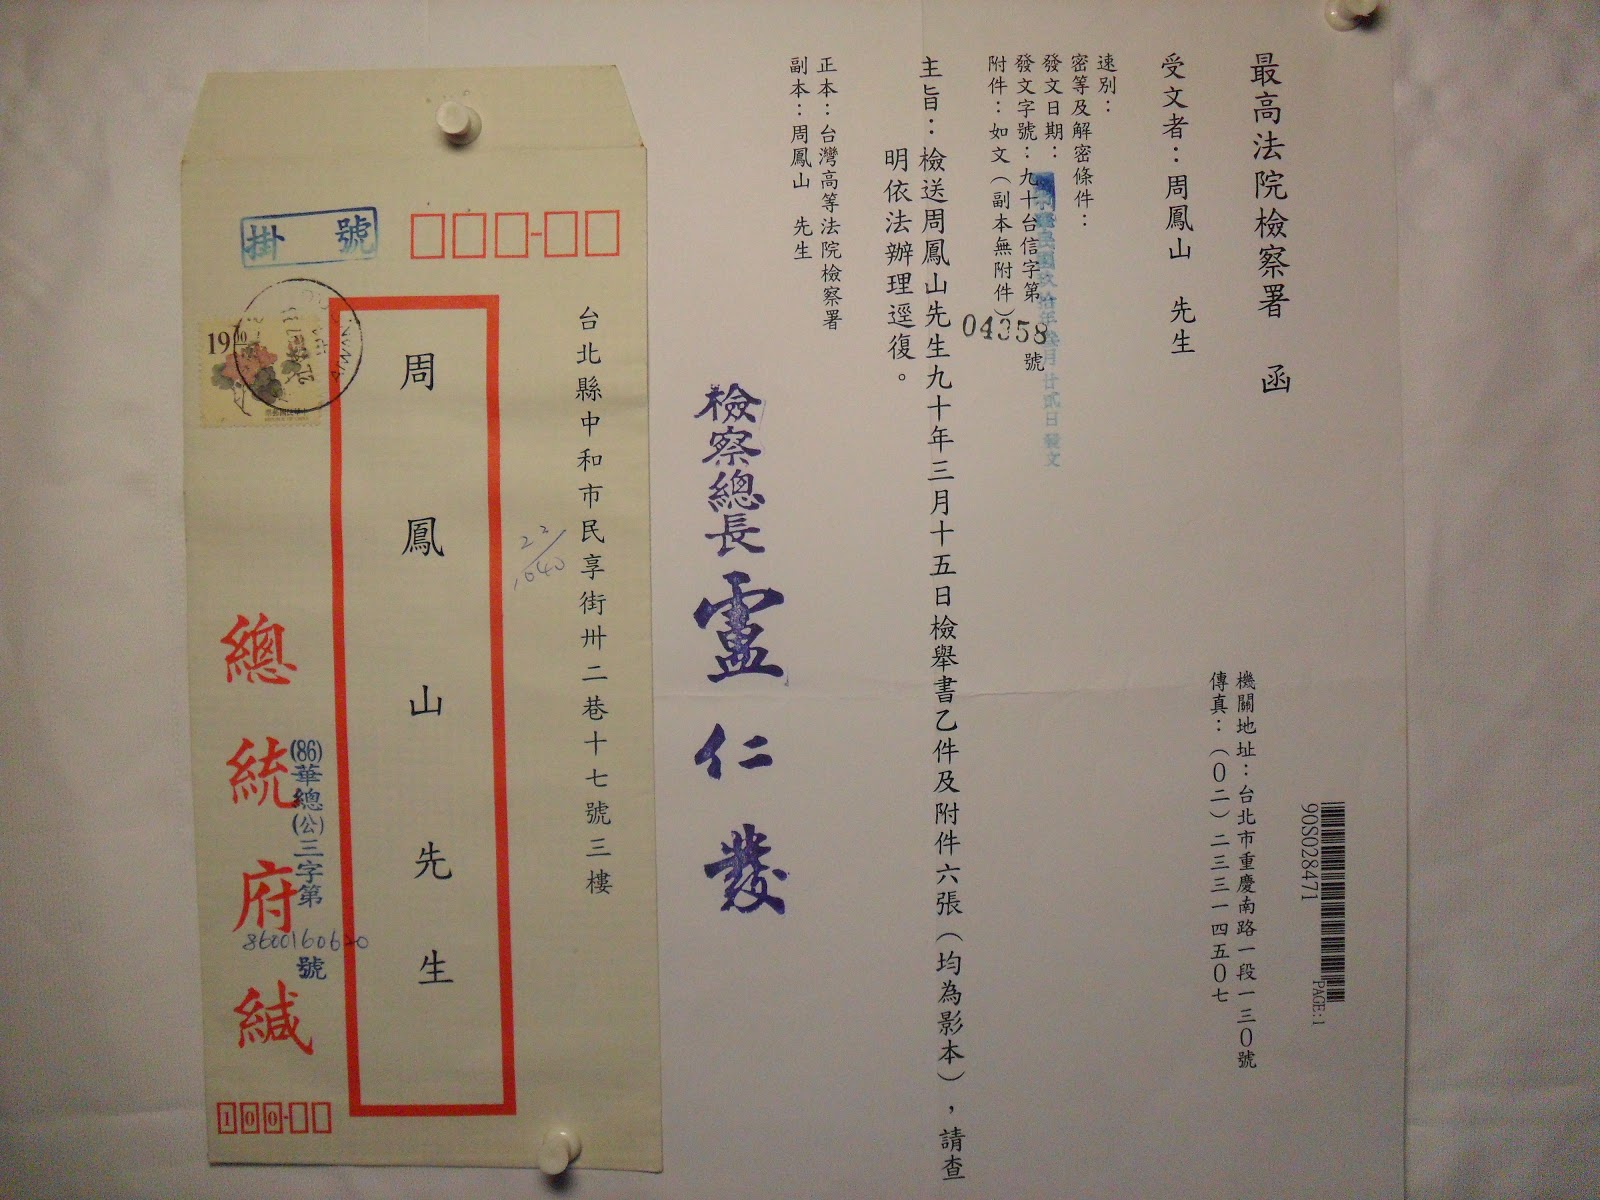 最高法院檢察署 函
90S028471
PAGE:1
機關地址：台北市重慶南路一段一三０號
傳真：（０二）二三三一四五０七
受文者：周鳳山 先生
速別：
密等及解密條件：
發文日期：中華民國玖拾年叁月廿貳日發文
發文字號：九十台信字第04358號
附件：如文（副本無附件）
主旨：檢送周鳳山先生九十年三月十五日檢舉書乙件及附件六張（均為影本），請查
明依法辦理逕復。
正本：台灣高等法院檢察署
副本：周鳳山 先生
檢察總長盧仁發
台北縣中和市民享街卅二巷十七號三樓
22/1040
周鳳山先生
掛號
19 00
中華民國郵票
總統府緘
(86)華總(公)三字第8600160620號
100